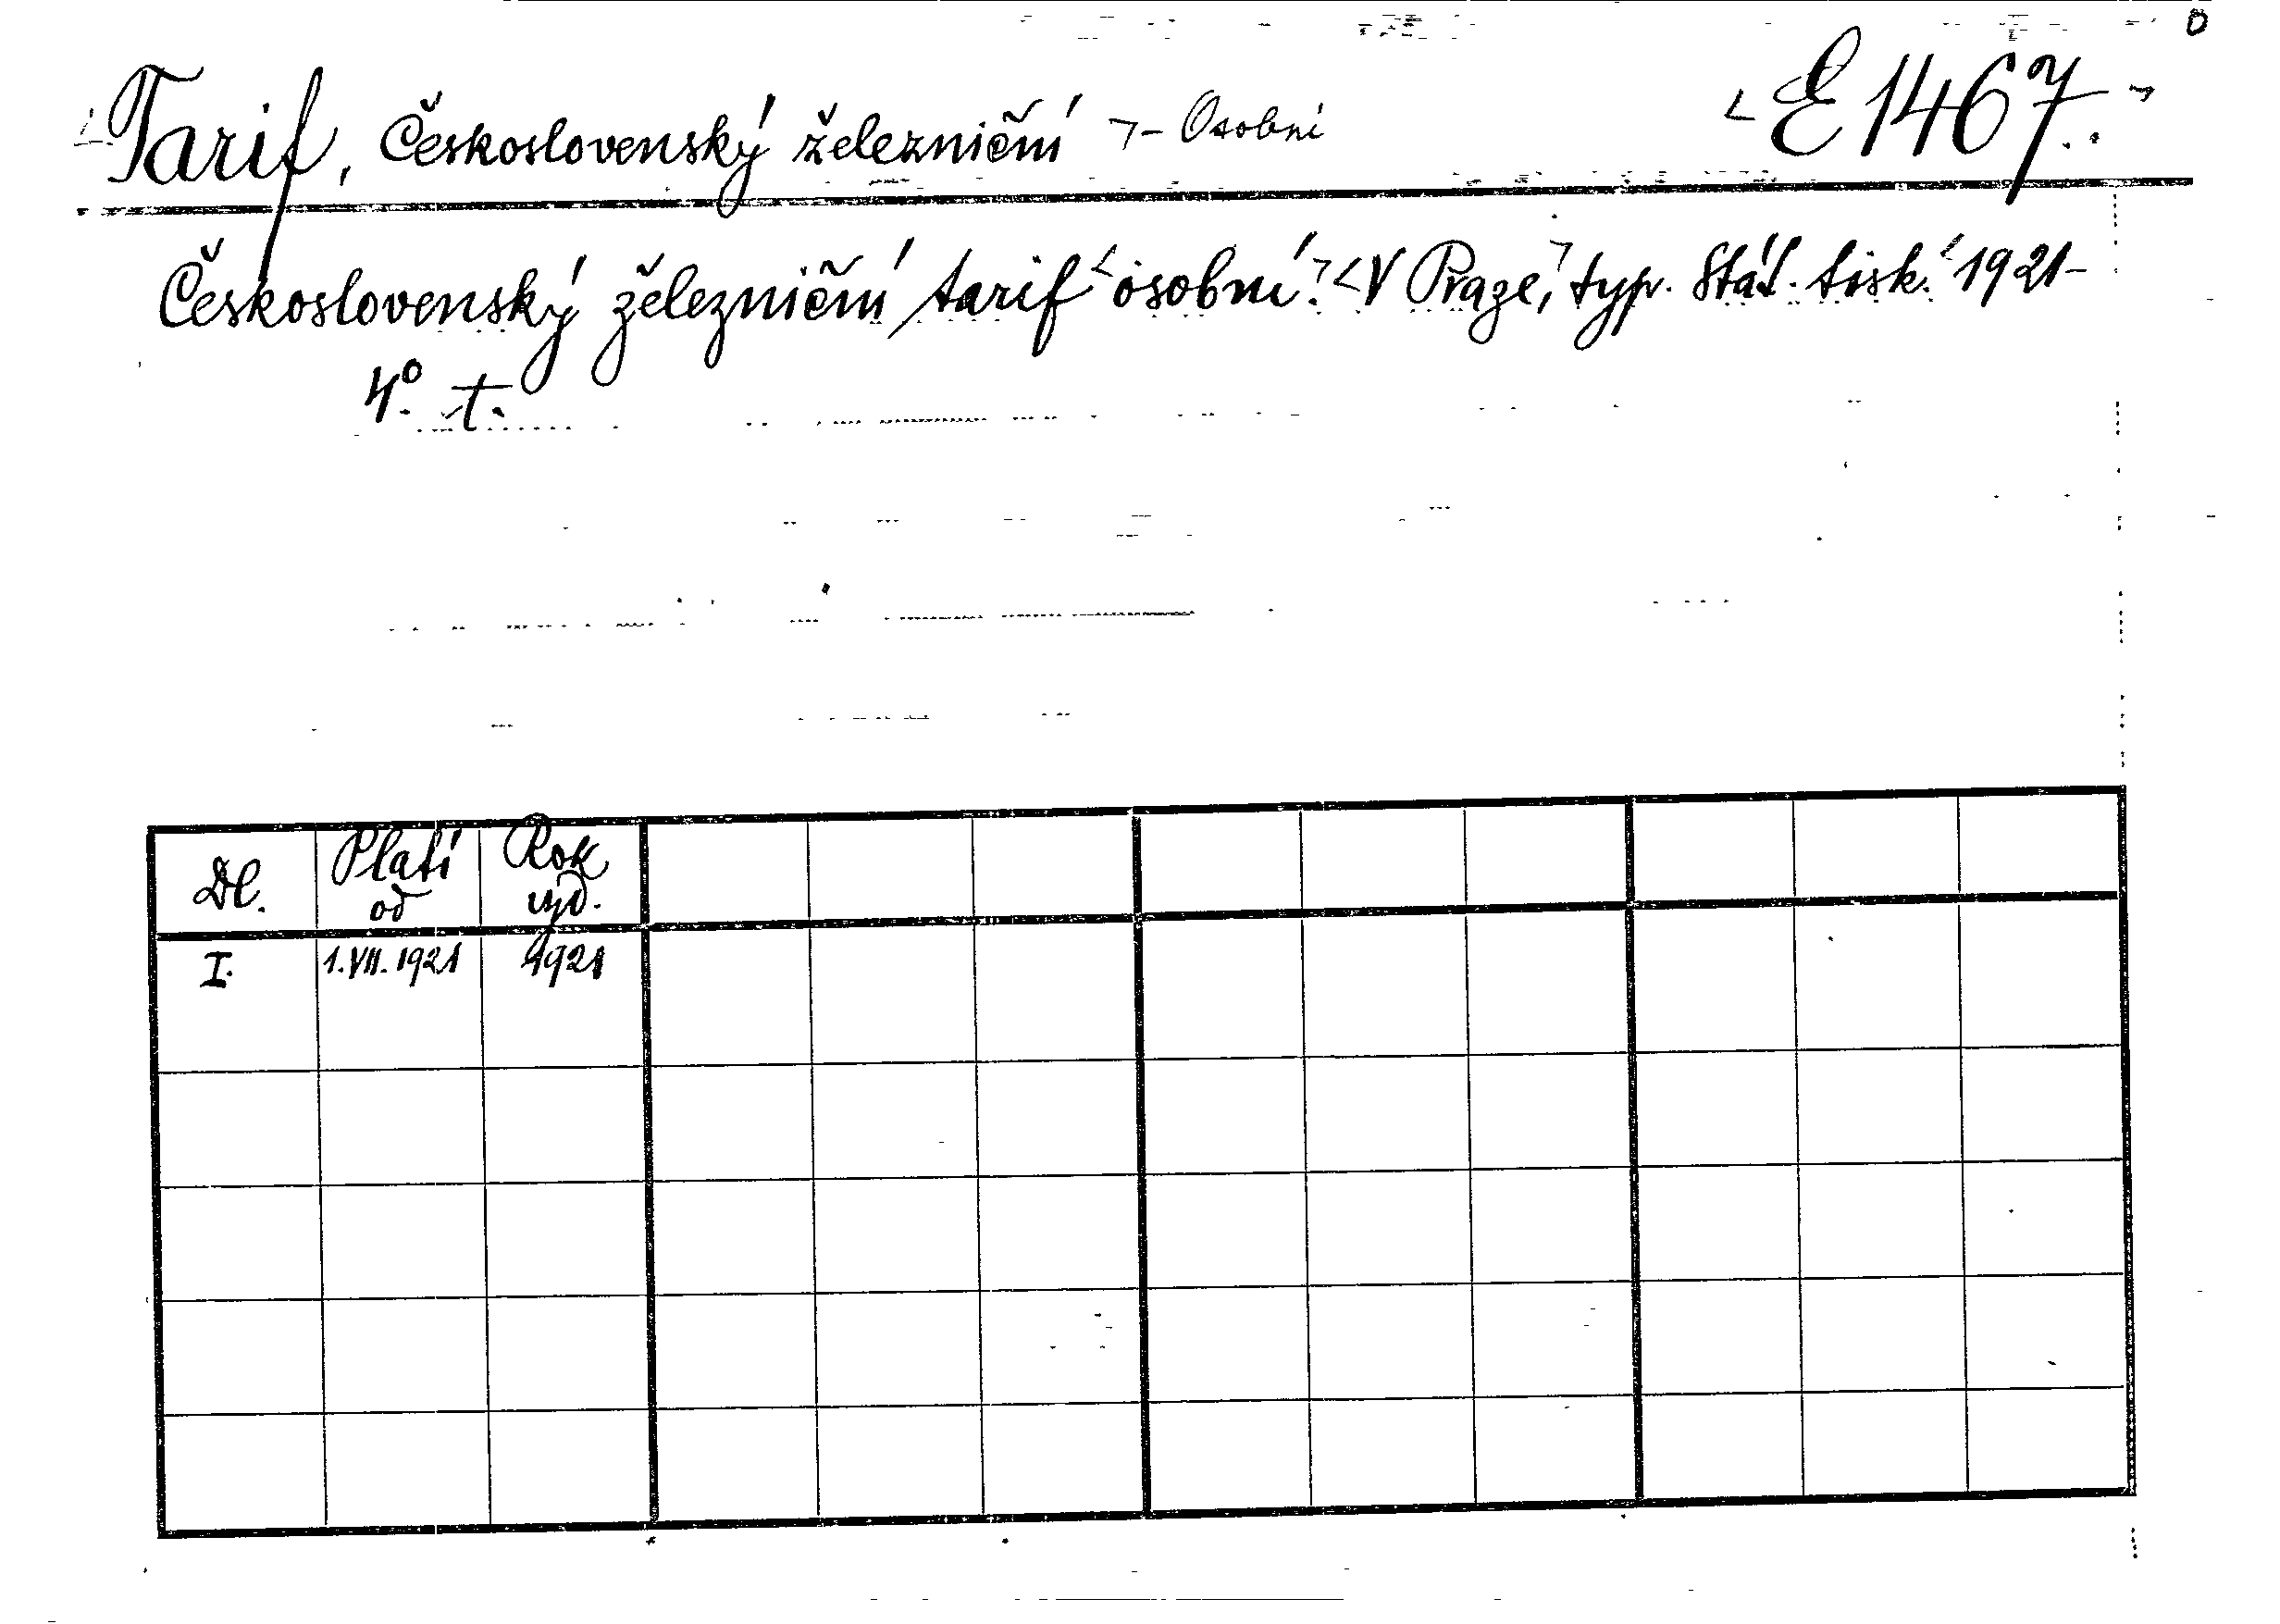 Tarif, Československý železniční – Osobní E 1467.
Československý železniční tarif osobní. V Praze, typ. Stát. tisk. 1921-
4°. t.
Dl. Platí od Rok vyd.
I. 1.VII.1921 1921